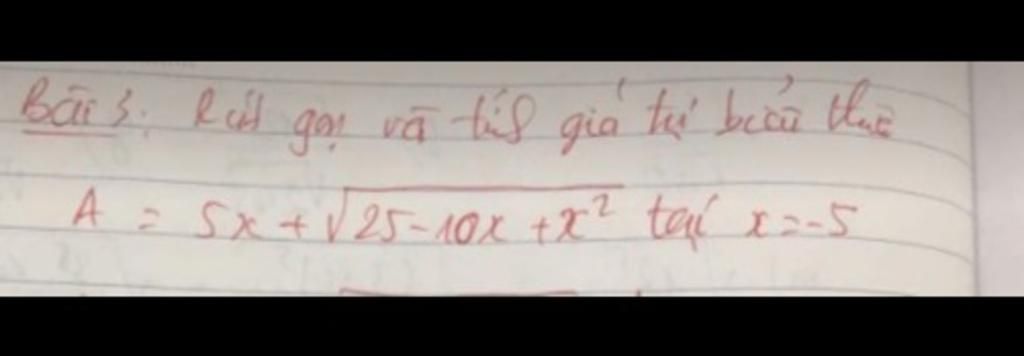 Bài 3: Rút gọn và tính giá trị biểu thức
A = 5x + √25-10x+x² tại x=-5